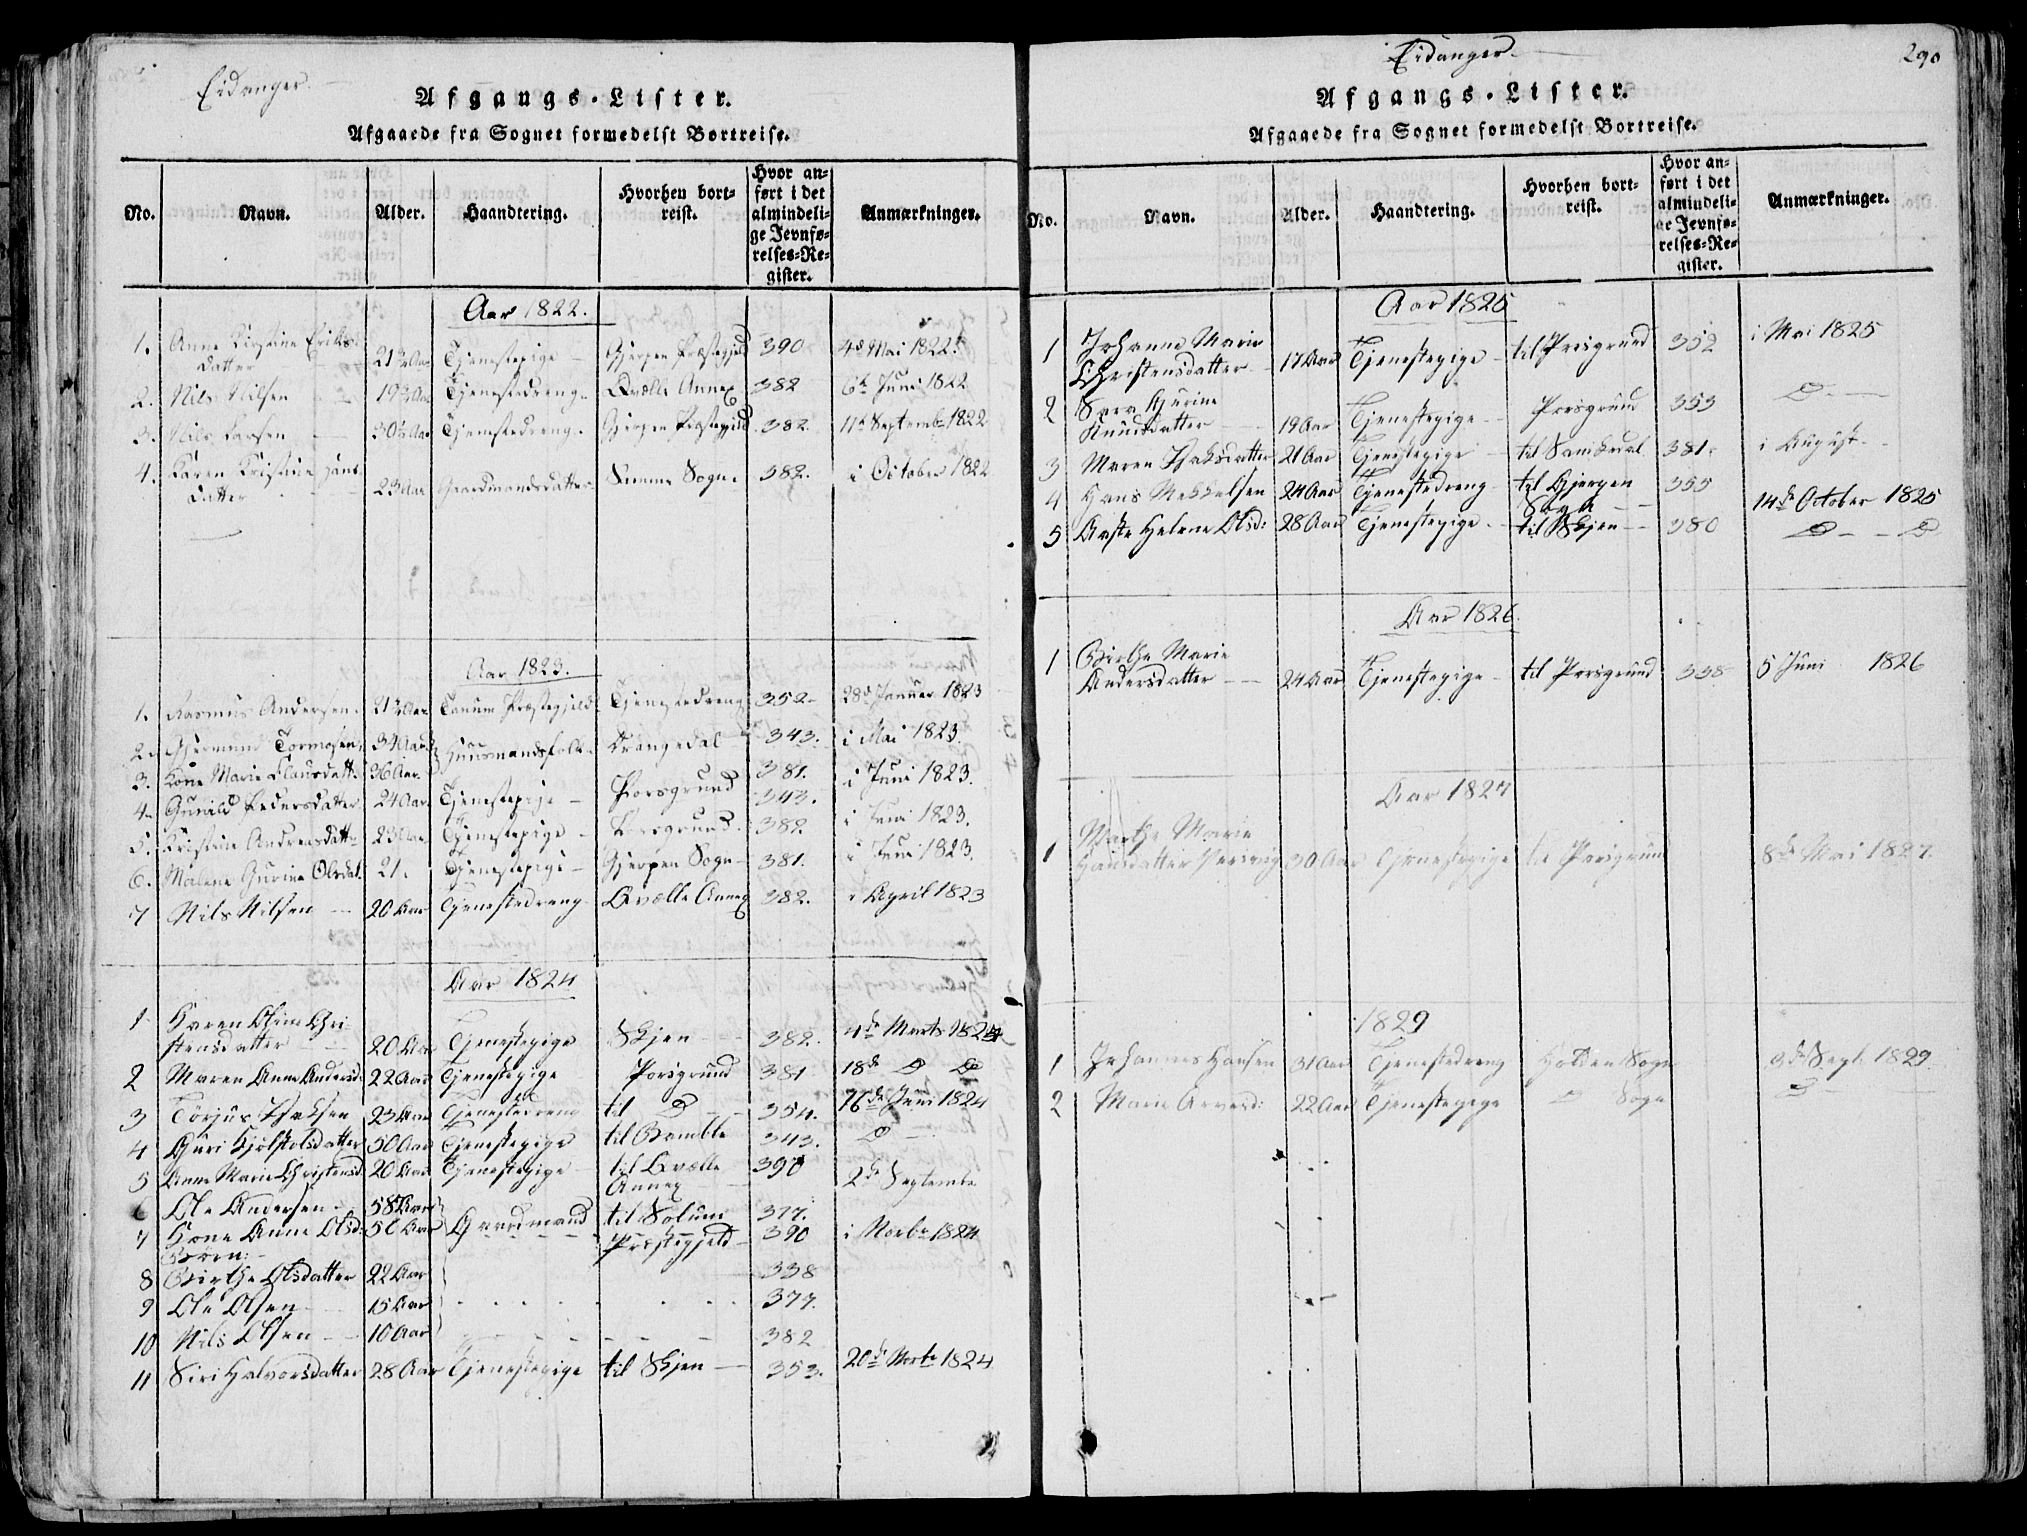 Eidanger.
Afgangs-Lister.
Afgaaede fra Sognet formedelst Bortreise.
No. Navn. Alder. Haandtering. Hvorhen bortreist. Hvor anført i det almindelige Jevnførelses-Register. Anmærkninger.
Aar 1822.
1. Anne Kirstine Eriksdatter 21½ Aar Tjenestepige Gjerpen Præstegjeld 390 4de Mai 1822.
2. Nils Nilsen 19½ Aar Tjenestedreng Qvælle Annex 382 6te Juni 1822
3. Nils Larsen 30½ Aar Tjenestedreng Gjerpen Præstegjeld 382. 11te Septembr 1822
4. Karen Kristine Hansdatter 23 Aar Gaardmandsdatter Sogn 382. i October 1822
Aar 1823.
1. Rasmus Andersen 21½ Aar Tanum Præstegjeld Tjenestedreng 352 28de Januar 1823
2. Gjermund Tormosen 34 Aar Huusmandsfolk Drangedal 343. i Mai 1823.
3. Kone Marie Clausdatt. 36 Aar 381. i Juni 1823.
4. Gunild Pedersdatter 24 Aar Tjenestepige Porsgrund 343.
5. Kristine Andreasdattr 23 Aar Tjenestepige Porsgrund 382. i Juni 1823.
6. Malene Gurine Olsdat. 21. Tjenestepige Gjerpen Sogn 381. i Juni 1823.
7 Nils Nilsen 20 Aar Tjenestedreng Qvælle Annex 382. i April 1823
Aar 1824
1 Karen Oline Christensdatter 20 Aar Tjenestepige Skjen 382. 4de Marts 1824
2 Maren Anne Andersd. 22 Aar Tjenestepige Porsgrund 381 18de D D
3 Torjus Isaksen 23 Aar Tjenestedreng til D 354. 16de Juni 1824
4 Guri Kjølstolsdatter 50 Aar Tjenestepige til Bamble 343. D
5 Anne Marie Christensd. 20 Aar Tjenestepige til Qvælle Annex 390 2de Septembr
6 Ole Andersen 58 Aar Gaardmand til Solum Præstegjeld 377.
7 Kone Anne Olsd. 50 Aar 390 i Novbr 1824
Børn:
8 Birthe Olsdatter 22 Aar 338
9 Ole Olsen 15 Aar 377.
10 Nils Olsen 10 Aar 382
11 Siri Halvorsdatter 28 Aar Tjenestepige til Skjen 353. 20de 1824
Eidanger.
290
Afgangs-Lister.
Afgaaede fra Sognet formedelst Bortreise.
No. Navn. Alder. Haandtering. Hvorhen bortreist. Hvor anført i det almindelige Jevnførelses-Register. Anmærkninger.
Aar 1825
1 Johanne Marie Christensdatter 17 Aar Tjenestepige til Porsgrund 352 i Mai 1825
2 Sara Gurine Knudsdatter 19 Aar Tjenestepige Porsgrund 353 D
3 Maren Isaksdatter 21 Aar Tjenestepige til Sanikedal 381. i August
4 Hans Mekkelsen 24 Aar Tjenestedreng til Gjerpen Sogn 355 14de October 1825
5 Aaste Helene Olsd: 28 Aar Tjenestepige til Skjen 380 D D
Aar 1826.
1 Birthe Marie Andersdatter 24 Aar Tjenestepige til Porsgrund 338 5 Juni 1826
Aar 1827
1 Marthe Marie Hansdatter 30 Aar Tjenestepige til Porsgrund 8de Mai 1827.
1829
1 Johannes Hansen 31 Aar Tjenestedreng Holden Sogn 9de Sept. 1829.
2 Marie 22 Aar Tjenestepige D Sogn D